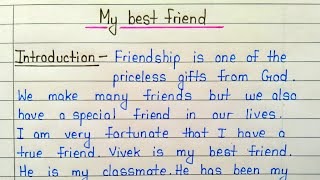 My best friend
Introduction - Friendship is one of the
priceless gifts from God.
We make many friends but we also
have a special friend in our lives.
I am very fortunate that I have a
true friend. Vivek is my best friend.
He is my classmate. He has been my